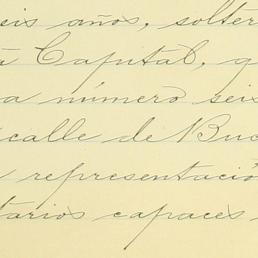 eis años, solter
a Capital, q
a número seis
calle de Buc
representació
tarios capaces